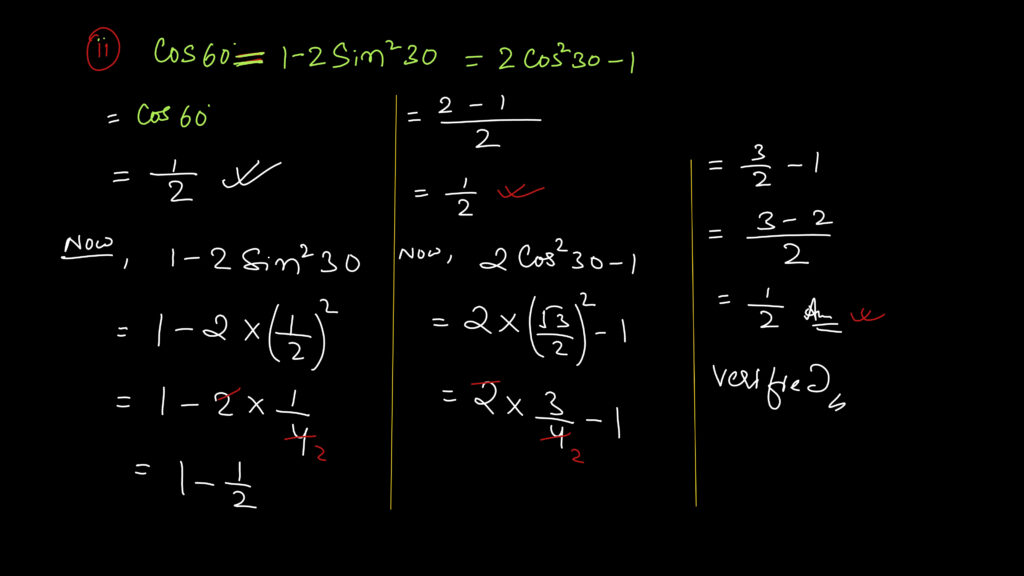 ii Cos60° = 1-2Sin²30 = 2Cos²30-1
= Cos60°
= 1/2
Now, 1-2Sin²30
= 1-2×(1/2)²
= 1-2×1/4 2
= 1-1/2
= 2-1/2
= 1/2
Now, 2Cos²30-1
= 2×(√3/2)²-1
= 2×3/4-1 2
= 3/2-1
= 3-2/2
= 1/2 An
verified